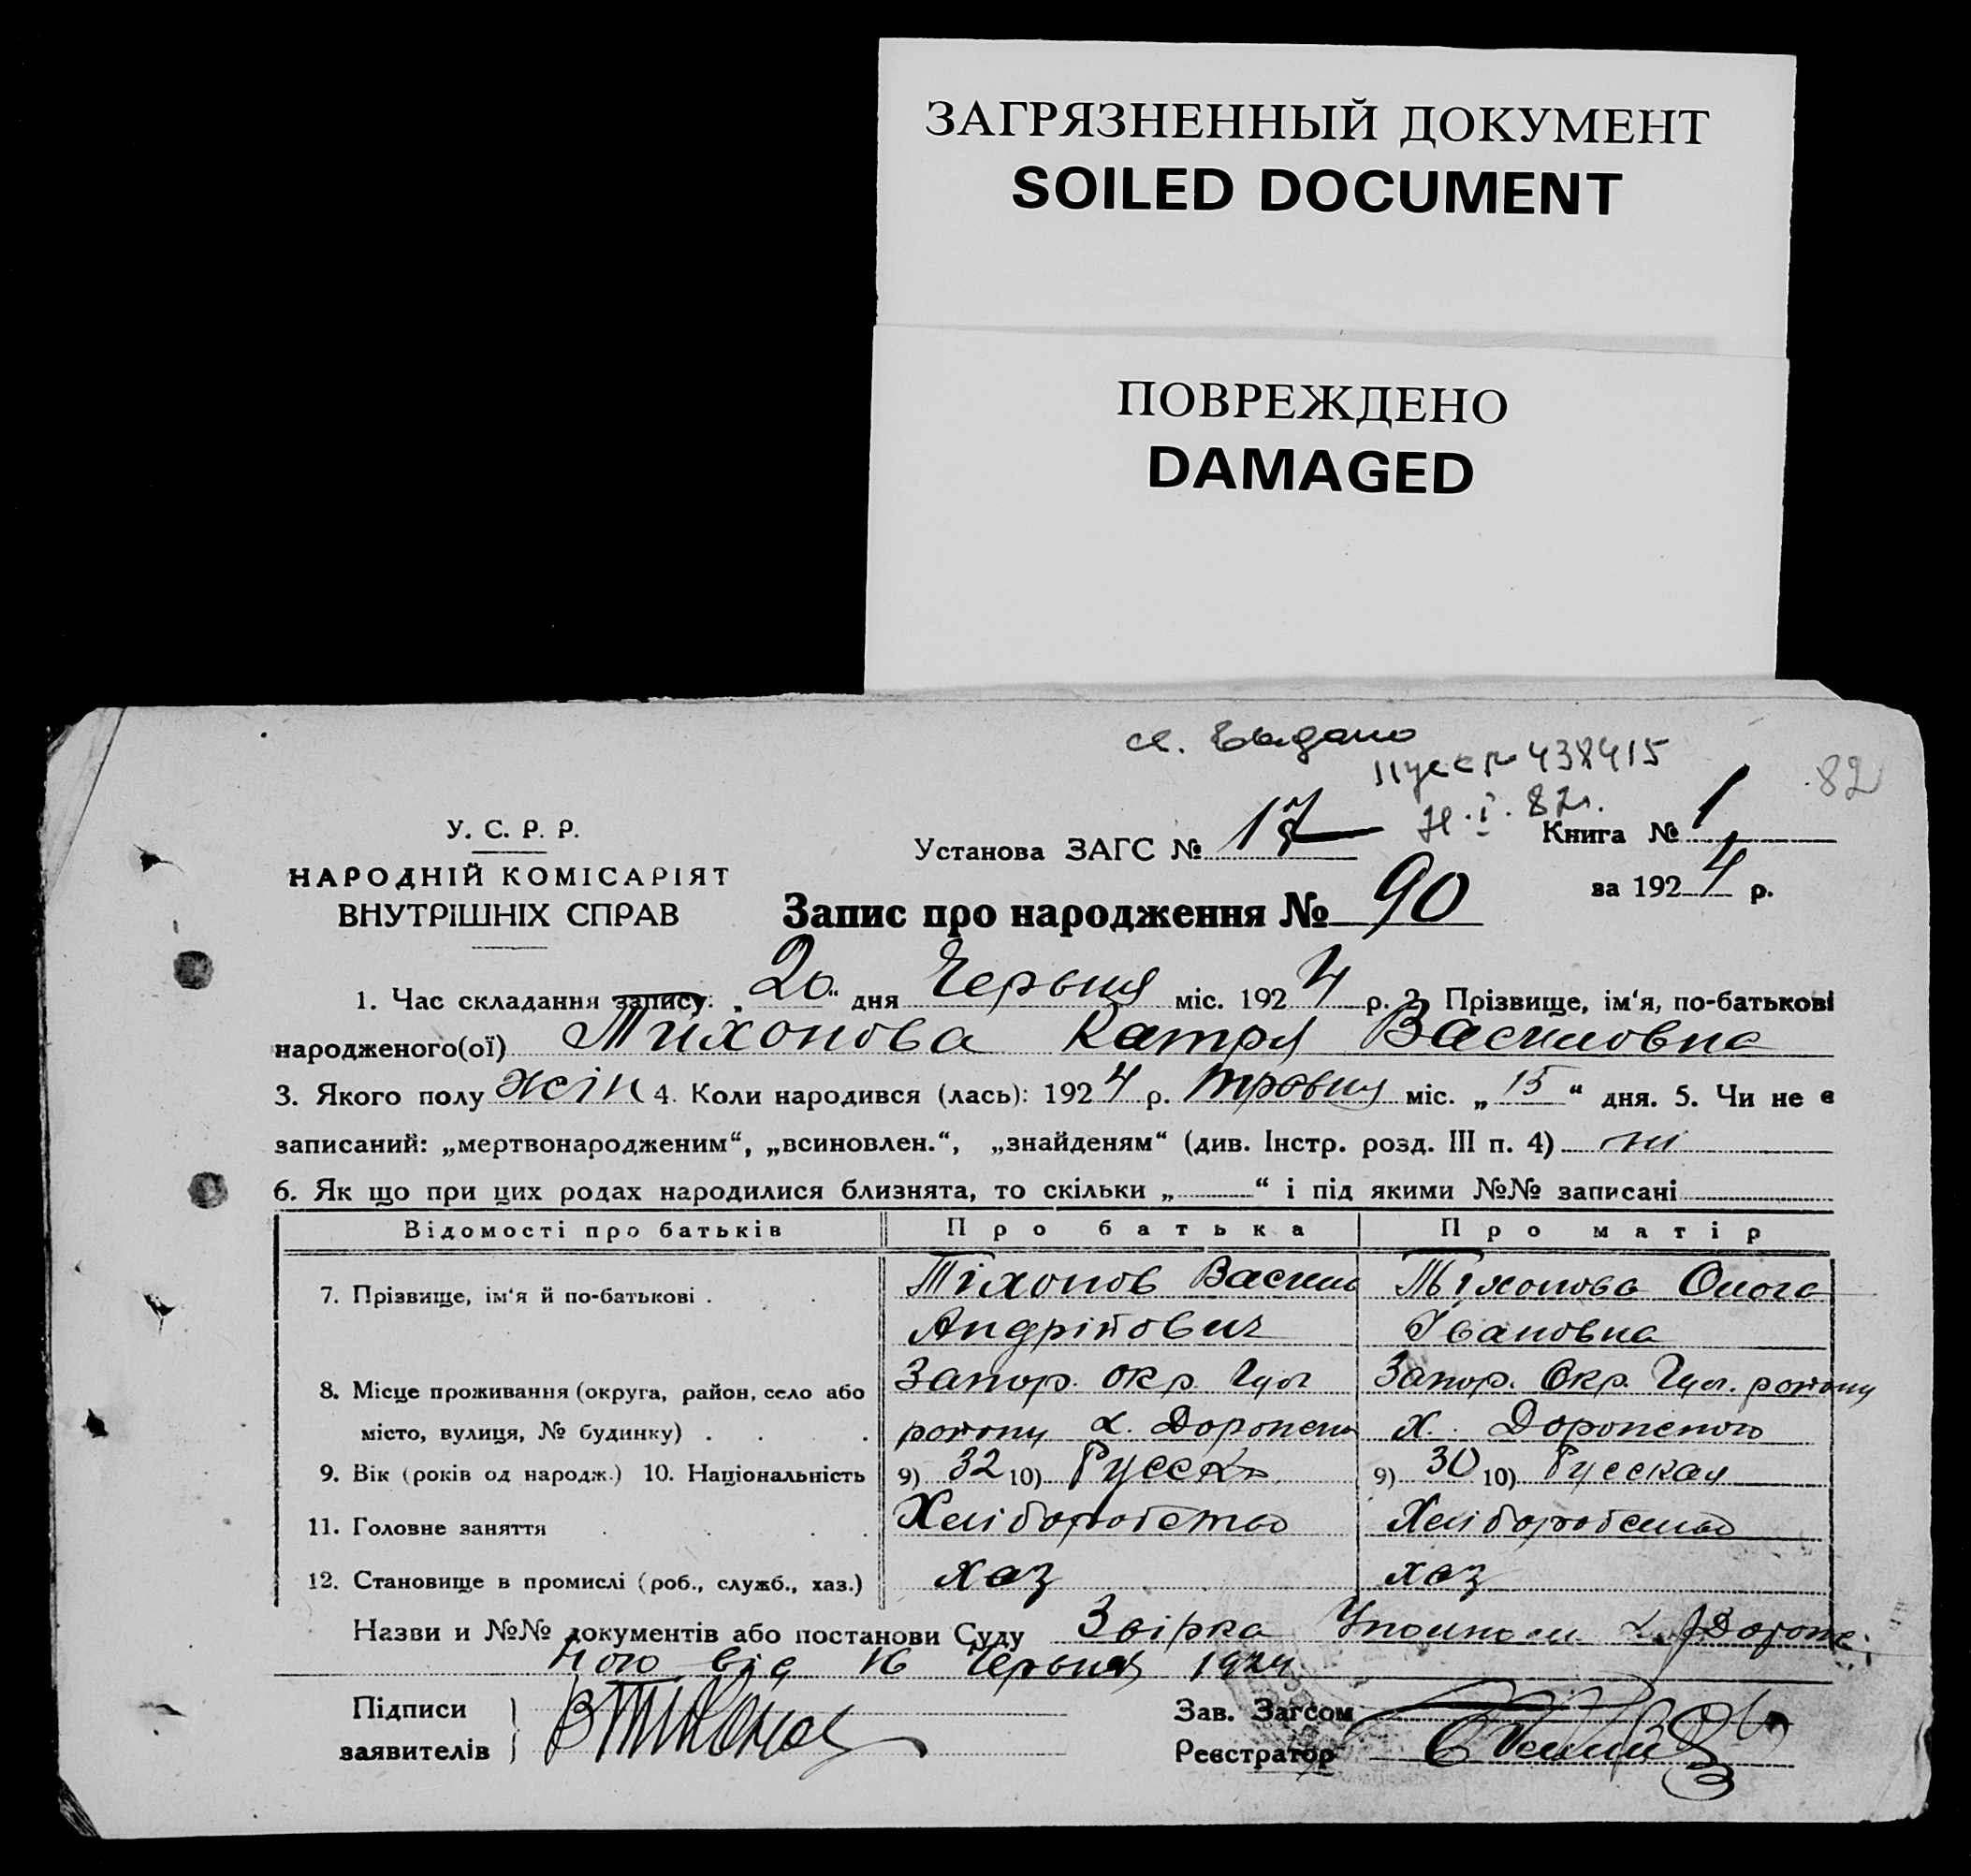 ЗАГРЯЗНЕННЫЙ ДОКУМЕНТ
SOILED DOCUMENT
ПОВРЕЖДЕНО
DAMAGED
выдано
438415
82
I. 82г.
У. С. Р. Р.
НАРОДНІЙ КОМІСАРІЯТ
ВНУТРІШНІХ СПРАВ
Установа ЗАГС № 17
Книга № 1
за 1924 р.
Запис про народження № 90
1. Час складання запису: „20“ дня Червня міс. 1924 р. 2. Прізвище, ім‘я, по-батькові
народженого(ої) Тихонова Катря Василовна
3. Якого полу жін 4. Коли народився (лась): 1924 р. травня міс. „15“ дня. 5. Чи не є
записаний: „мертвонародженим“, „всиновлен.“, „знайденям“ (див. Інстр. розд. III п. 4) ні
6. Як що при цих родах народилися близнята, то скільки „ “ і під якими №№ записані
Відомості про батьків Про батька Про матір
7. Прізвище, ім‘я й по-батькові . Тіхонов Василь Тіхонова Ольга
Андрійович Івановна
8. Місце проживання (округа, район, село або Запор. окр. Гул Запор. Окр. Гул. району
місто, вулиця, № будинку) . району х. х.
9. Вік (років од народж.) 10. Національність 9) 32 10) Русск 9) 30 10) Русская
11. Головне заняття Хліборобство Хліборобство
12. Становище в промислі (роб., служб., хаз.) хаз хаз
Назви и №№ документів або постанови Суду Звірка х.
від 16 Червня 1924
Підписи
заявителів
В Тихонов
Зав. Загсом
Реєстратор